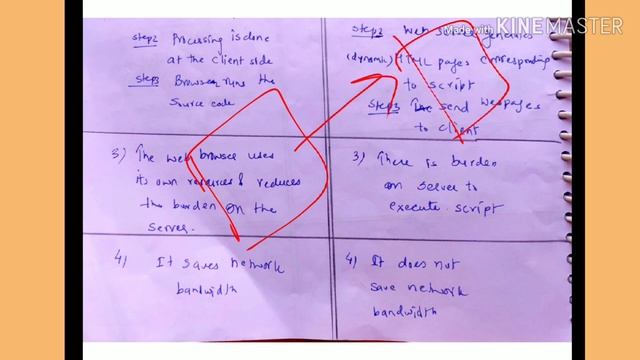 Made with KINEMASTER
step2 Processing is done
at the client side
step3 Browser runs the
source code
step2 Web server generates
(dynamic) HTML pages corresponding
to script
step3 send webpages
to client
3) The web browse uses
its own resources & reduces
the burden on the
server.
3) There is burden
on server to
execute script
4) It saves network
bandwidth
4) It does not
save network
bandwidth